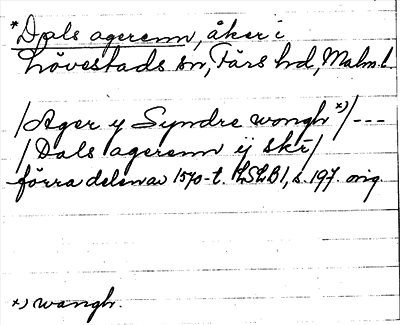 *Dals agerenn, åker i
Lövestads sn, Färs hd, Malm.l.
/Ager y Syndre wongh *)/---
/Dals agerenn ij skr/
förra delen av 1570-t. LSLB1, s. 197. orig.
*) wangh.